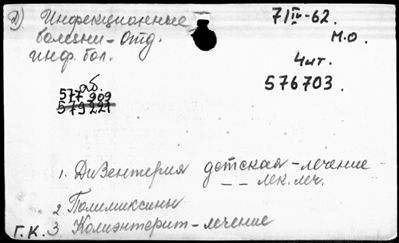 2) Инфекционные
болезни-Отд.
инф. бол.
7/IV-62.
М.О.
4чит.
576703.
аб.
577909
579221
1. Дизентерия детская-лечение
-- лек. леч.
2 Полимиксины
Г.К. 3 Колиэнтерит-лечение